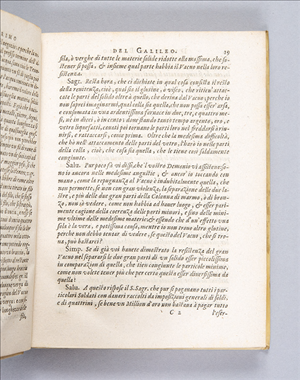 DEL GALILEO. 19
silà, ò verghe di tutte le materie solide ridotte alla massima, che sostener
si possa, & insieme qual parte habbia il Vacuo nella loro resistenza.
Sagr. Resta hora, che ci dichiate in qual cosa consista il resto
della resistenza, cioè, qual sia il glutine, ò visco, che ritien attaccate
le parti del solido, oltre à quello, che deriva dal Vacuo: perche io
non saprei imaginarmi, qual colla sia quella, che non possa esser arsa,
e consumata in una ardentissima fornace in due, tre, e quattro mesi,
nè in dieci, ò in cento: e dove stando tanto tempo argento, oro, e
vetro liquefatti, cavati poi tornano le parti loro nel freddarsi à riunirsi,
e rattaccarsi, come prima. Oltre che la medesima difficoltà,
che hò nell attaccamento delle parti del vetro, l'havrò io nelle parti
della colla, cioè, che cosa sia quella, che le tiene così saldamente
congiunte.
Salu. Pur poco fà vi dissi, che'l vostro Demonio vi assisteva: sono
io ancora nelle medesime angustie, & ancor io toccando con
mano, come la repugnanza al Vacuo è indubitabilmente quella, che
non permette, se non con gran violenza, la separazione delle due lastre,
e più delle due gran parti della Colonna di marmo, ò di bronzo,
non sò vedere, come non habbia ad haver luogo, & esser parimente
cagione della coerenza delle parti minori, e sino delle minime
ultime delle medesime materie: & essendo che d'un effetto una
sola è la vera, e potissima causa, mentre io non trovo altro glutine,
perche non debbo tentar di vedere, se questo del Vacuo, che si trova,
può bastarci?
Simp. Se di già voi havete dimostrato la resistenza del gran
Vacuo nel separarsi le due gran parti di un solido esser piccolissima
in comparazion di quella, che tien congiunte le particole minime,
come non volete tener più che per certo questa esser diversissima da
quella?
Salu. A questo rispose il S. Sagr. che pur si pagavano tutti i particolari
Soldati con danari raccolti da imposizioni generali di soldi,
e di quattrini, se bene un Million d'oro non bastava à pagar tutto
C 2 l'eser-